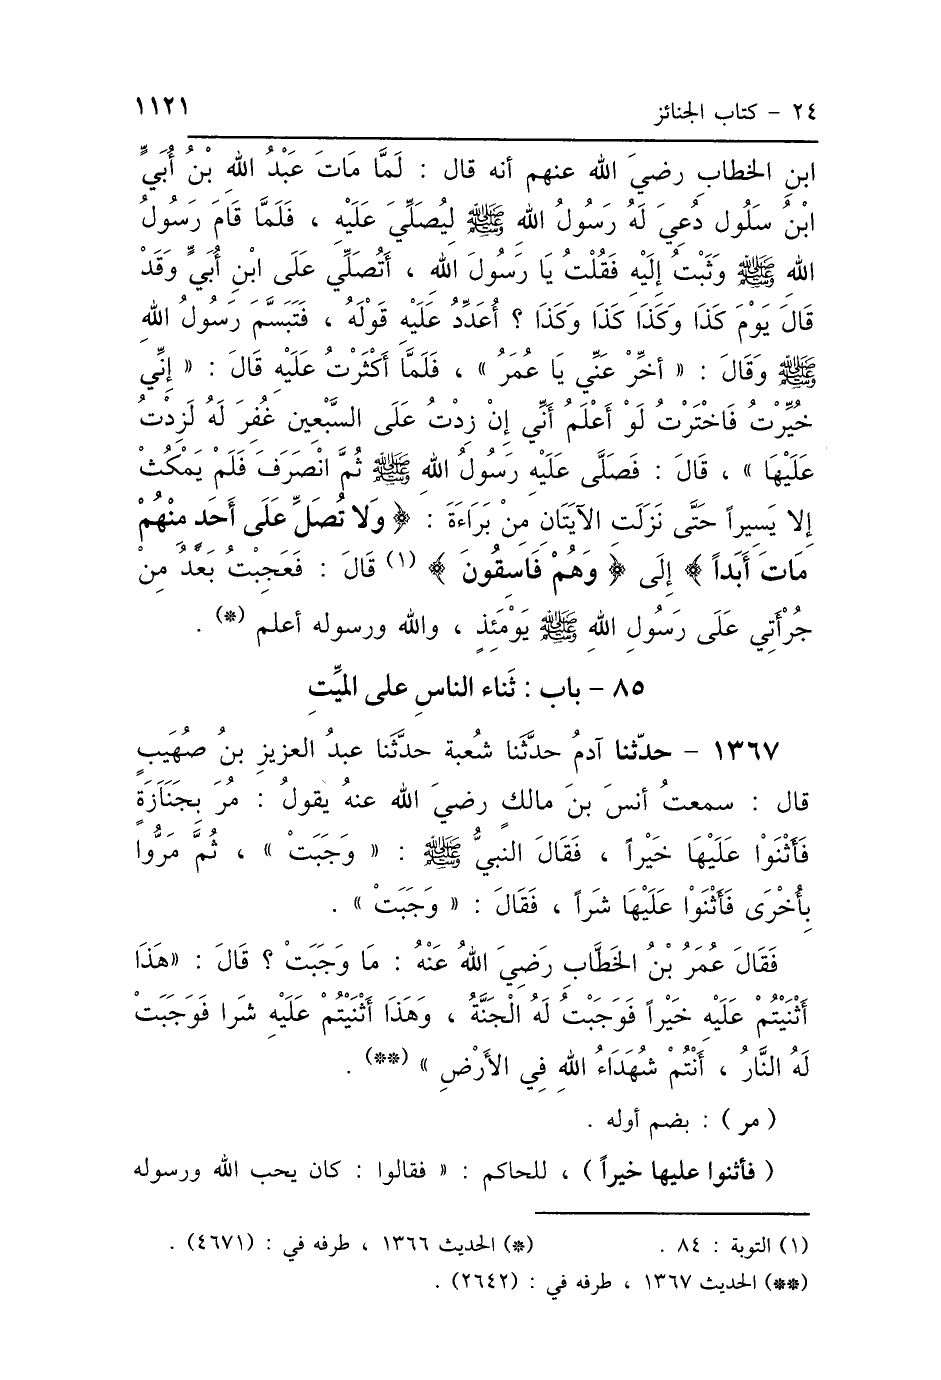 ٢٤ - كتاب الجنائز ١١٢١
ابنِ الخطابِ رضيَ الله عنهم أنه قال : لَمَّا مَاتَ عَبْدُ اللهِ بْنُ أُبَيٍّ
ابْنُ سَلُولَ دُعِيَ لَهُ رَسُولُ اللهِ ﷺ لِيُصَلِّيَ عَلَيْهِ ، فَلَمَّا قَامَ رَسُولُ
اللهِ ﷺ وَثَبْتُ إِلَيْهِ فَقُلْتُ يَا رَسُولَ اللهِ ، أَتُصَلِّي عَلَى ابنِ أُبَيٍّ وَقَدْ
قَالَ يَوْمَ كَذَا وَكَذَا كَذَا وَكَذَا ؟ أُعَدِّدُ عَلَيْهِ قَوْلَهُ ، فَتَبَسَّمَ رَسُولُ اللهِ
ﷺ وَقَالَ : « أَخِّرْ عَنِّي يَا عُمَرُ » ، فَلَمَّا أَكْثَرْتُ عَلَيْهِ قَالَ : « إِنِّي
خُيِّرْتُ فَاخْتَرْتُ لَوْ أَعْلَمُ أَنِّي إِنْ زِدْتُ عَلَى السَّبْعِينِ غُفِرَ لَهُ لَزِدْتُ
عَلَيْهَا » ، قَالَ : فَصَلَّى عَلَيْهِ رَسُولُ اللهِ ﷺ ثُمَّ انْصَرَفَ فَلَمْ يَمْكُثْ
إلا يَسِيراً حَتَّى نَزَلَتِ الآيَتَانِ مِنْ بَرَاءَةَ : ﴿ وَلا تُصَلِّ عَلَى أَحَدٍ مِنْهُمْ
مَاتَ أَبَداً ﴾ إِلَى ﴿ وَهُمْ فَاسِقُونَ ﴾ (١) قَالَ : فَعَجِبْتُ بَعْدُ مِنْ
جُرْأَتِي عَلَى رَسُولِ اللهِ ﷺ يَوْمَئِذٍ ، والله ورسوله أعلم (*) .
٨٥ - باب : ثَناء الناسِ على الميِّتِ
١٣٦٧ - حدّثنا آدمُ حدَّثَنا شُعبة حدَّثَنا عبدُ العزيزِ بنُ صُهَيبٍ
قال : سمعتُ أنسَ بنَ مالكٍ رضيَ الله عنهُ يقولُ : مُرَ بِجَنَازَةٍ
فَأَثْنَوْا عَلَيْهَا خَيْراً ، فَقَالَ النبيُّ ﷺ : « وَجَبَتْ » ، ثُمَّ مَرُّوا
بِأُخْرَى فَأَثْنَوْا عَلَيْهَا شَراً ، فَقَالَ : « وَجَبَتْ » .
فَقَالَ عُمَرُ بْنُ الخَطَّابِ رَضِيَ اللهُ عَنْهُ : مَا وَجَبَتْ ؟ قَالَ : «هَذَا
أَثْنَيْتُمْ عَلَيْهِ خَيْراً فَوَجَبْتُ لَهُ الْجَنَّةُ ، وَهَذَا أَثْنَيْتُمْ عَلَيْهِ شَرا فَوَجَبَتْ
لَهُ النَّارُ ، أَنْتُمْ شُهَدَاءُ اللهِ فِي الأَرْضِ » (**) .
( مر ) : بضم أوله .
( فأثنوا عليها خيراً ) ، للحاكم : « فقالوا : كان يحب الله ورسوله
(١) التوبة : ٨٤ . (*) الحديث ١٣٦٦ ، طرفه في : (٤٦٧١) .
(**) الحديث ١٣٦٧ ، طرفه في : (٢٦٤٢) .